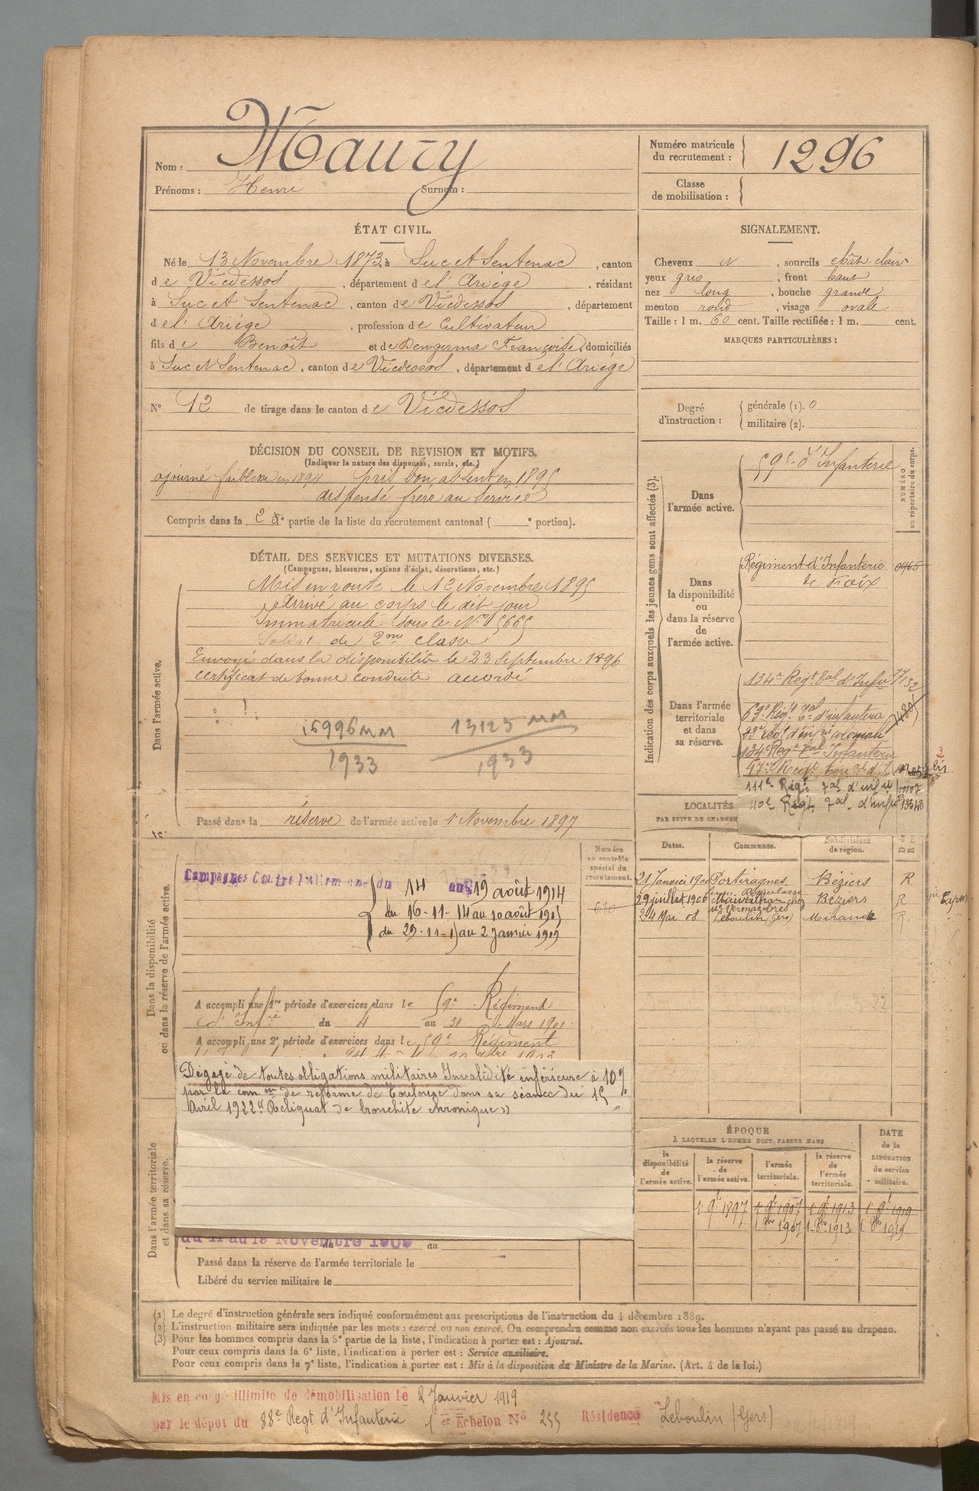 Nom : Maury
Prénoms : Henri Surnom :
Numéro matricule du recrutement : 1296
Classe de mobilisation :
ÉTAT CIVIL.
Né le 13 Novembre 1873, à Suc et Sentenac, canton
de Vicdessos, département de l'Ariège, résidant
à Suc et Sentenac, canton de Vicdessos, département
de l'Ariège, profession de Cultivateur
fils de Benoît et de Dengerma Françoise, domiciliés
à Suc et Sentenac, canton de Vicdessos, département de l'Ariège
N° 12 de tirage dans le canton de Vicdessos
SIGNALEMENT.
Cheveux N, sourcils chât-clair
yeux gris, front haut
nez long, bouche grande
menton rond, visage ovale
Taille : 1 m. 60 cent. Taille rectifiée : 1 m. cent.
MARQUES PARTICULIÈRES :
Degré d'instruction : générale (1). 0
militaire (2).
DÉCISION DU CONSEIL DE REVISION ET MOTIFS.
(Indiquer la nature des dispenses, sursis, etc.)
ajourné faiblesse en 1894 pris bon absent en 1895
dispensé frère au service
Compris dans la 2e partie de la liste du recrutement cantonal ( e portion).
DÉTAIL DES SERVICES ET MUTATIONS DIVERSES.
(Campagnes, blessures, actions d'éclat, décorations, etc.)
Dans l'armée active.
Mis en route le 12 Novembre 1895
Arrivé au corps le dit jour
Immatriculé sous le N° 5665
Soldat de 2me classe
Envoyé dans la disponibilité le 23 Septembre 1896
certificat de bonne conduite accordé
16996 MM
1933
13125 MM
1933
Passé dans la réserve de l'armée active le 1 Novembre 1897
Indication des corps auxquels les jeunes gens sont affectés (3).
NUMÉRO au répertoire du corps.
Dans l'armée active.
59e d'Infanterie
Dans la disponibilité ou dans la réserve de l'armée active.
Régiment d'Infanterie
de Foix
Dans l'armée territoriale et dans sa réserve.
134e Regt Tal d'Infie
134e Regt Tal Infanterie
111e Régt Tal d'infie
LOCALITÉS
PAR SUITE DE CHANGEM
Dates. Communes. Subdivisions de région.
21 Janvier 1900 Portiragnes Béziers R
29 juillet 1906 Béziers R
24 Mai 08 Leboulin (Gers) Mirande R.
Dans la disponibilité ou dans la réserve de l'armée active.
Numéro au contrôle spécial du recrutement.
Campagnes Contre l'Allemagne du 14 au 19 août 1914
du 16-11-14 au 10 août 191
du 29-11-1 au 2 Janvier 1919
A accompli une 1re période d'exercices dans le 59e Régiment
d'Infie du 4 au 31 Mars 1901
A accompli une 2e période d'exercices dans le 59e Régiment
Dégagé de toutes obligations militaires Invalidité inférieure à 10%
par la comon de réforme de Toulouse dans sa séance du 15
Avril 1922 "Reliquat de bronchite chronique"
Dans l'armée territoriale et dans sa réserve.
du 11 au 19 Novembre 1909 au
Passé dans la réserve de l'armée territoriale le
Libéré du service militaire le
ÉPOQUE
À LAQUELLE L'HOMME DOIT PASSER DANS
DATE de la LIBÉRATION du service militaire.
la disponibilité de l'armée active. la réserve de l'armée active. l'armée territoriale. la réserve de l'armée territoriale.
1 9e 1897 1 9e 1907 1 9e 1913 1 9e 1919
1 1907 1 1913 1 1919
(1) Le degré d'instruction générale sera indiqué conformément aux prescriptions de l'instruction du 4 décembre 1889.
(2) L'instruction militaire sera indiquée par les mots : exercé ou non exercé. On comprendra comme non exercés tous les hommes n'ayant pas passé au drapeau.
(3) Pour les hommes compris dans la 5e partie de la liste, l'indication à porter est : Ajourné.
Pour ceux compris dans la 6e liste, l'indication à porter est : Service auxiliaire.
Pour ceux compris dans la 7e liste, l'indication à porter est : Mis à la disposition du Ministre de la Marine. (Art. 4 de la loi.)
Mis en congé illimité de démobilisation le 2 Janvier 1919
par le dépôt du 88e Regt d'Infanterie 1er Echelon N° 255 Résidence Leboulin (Gers)